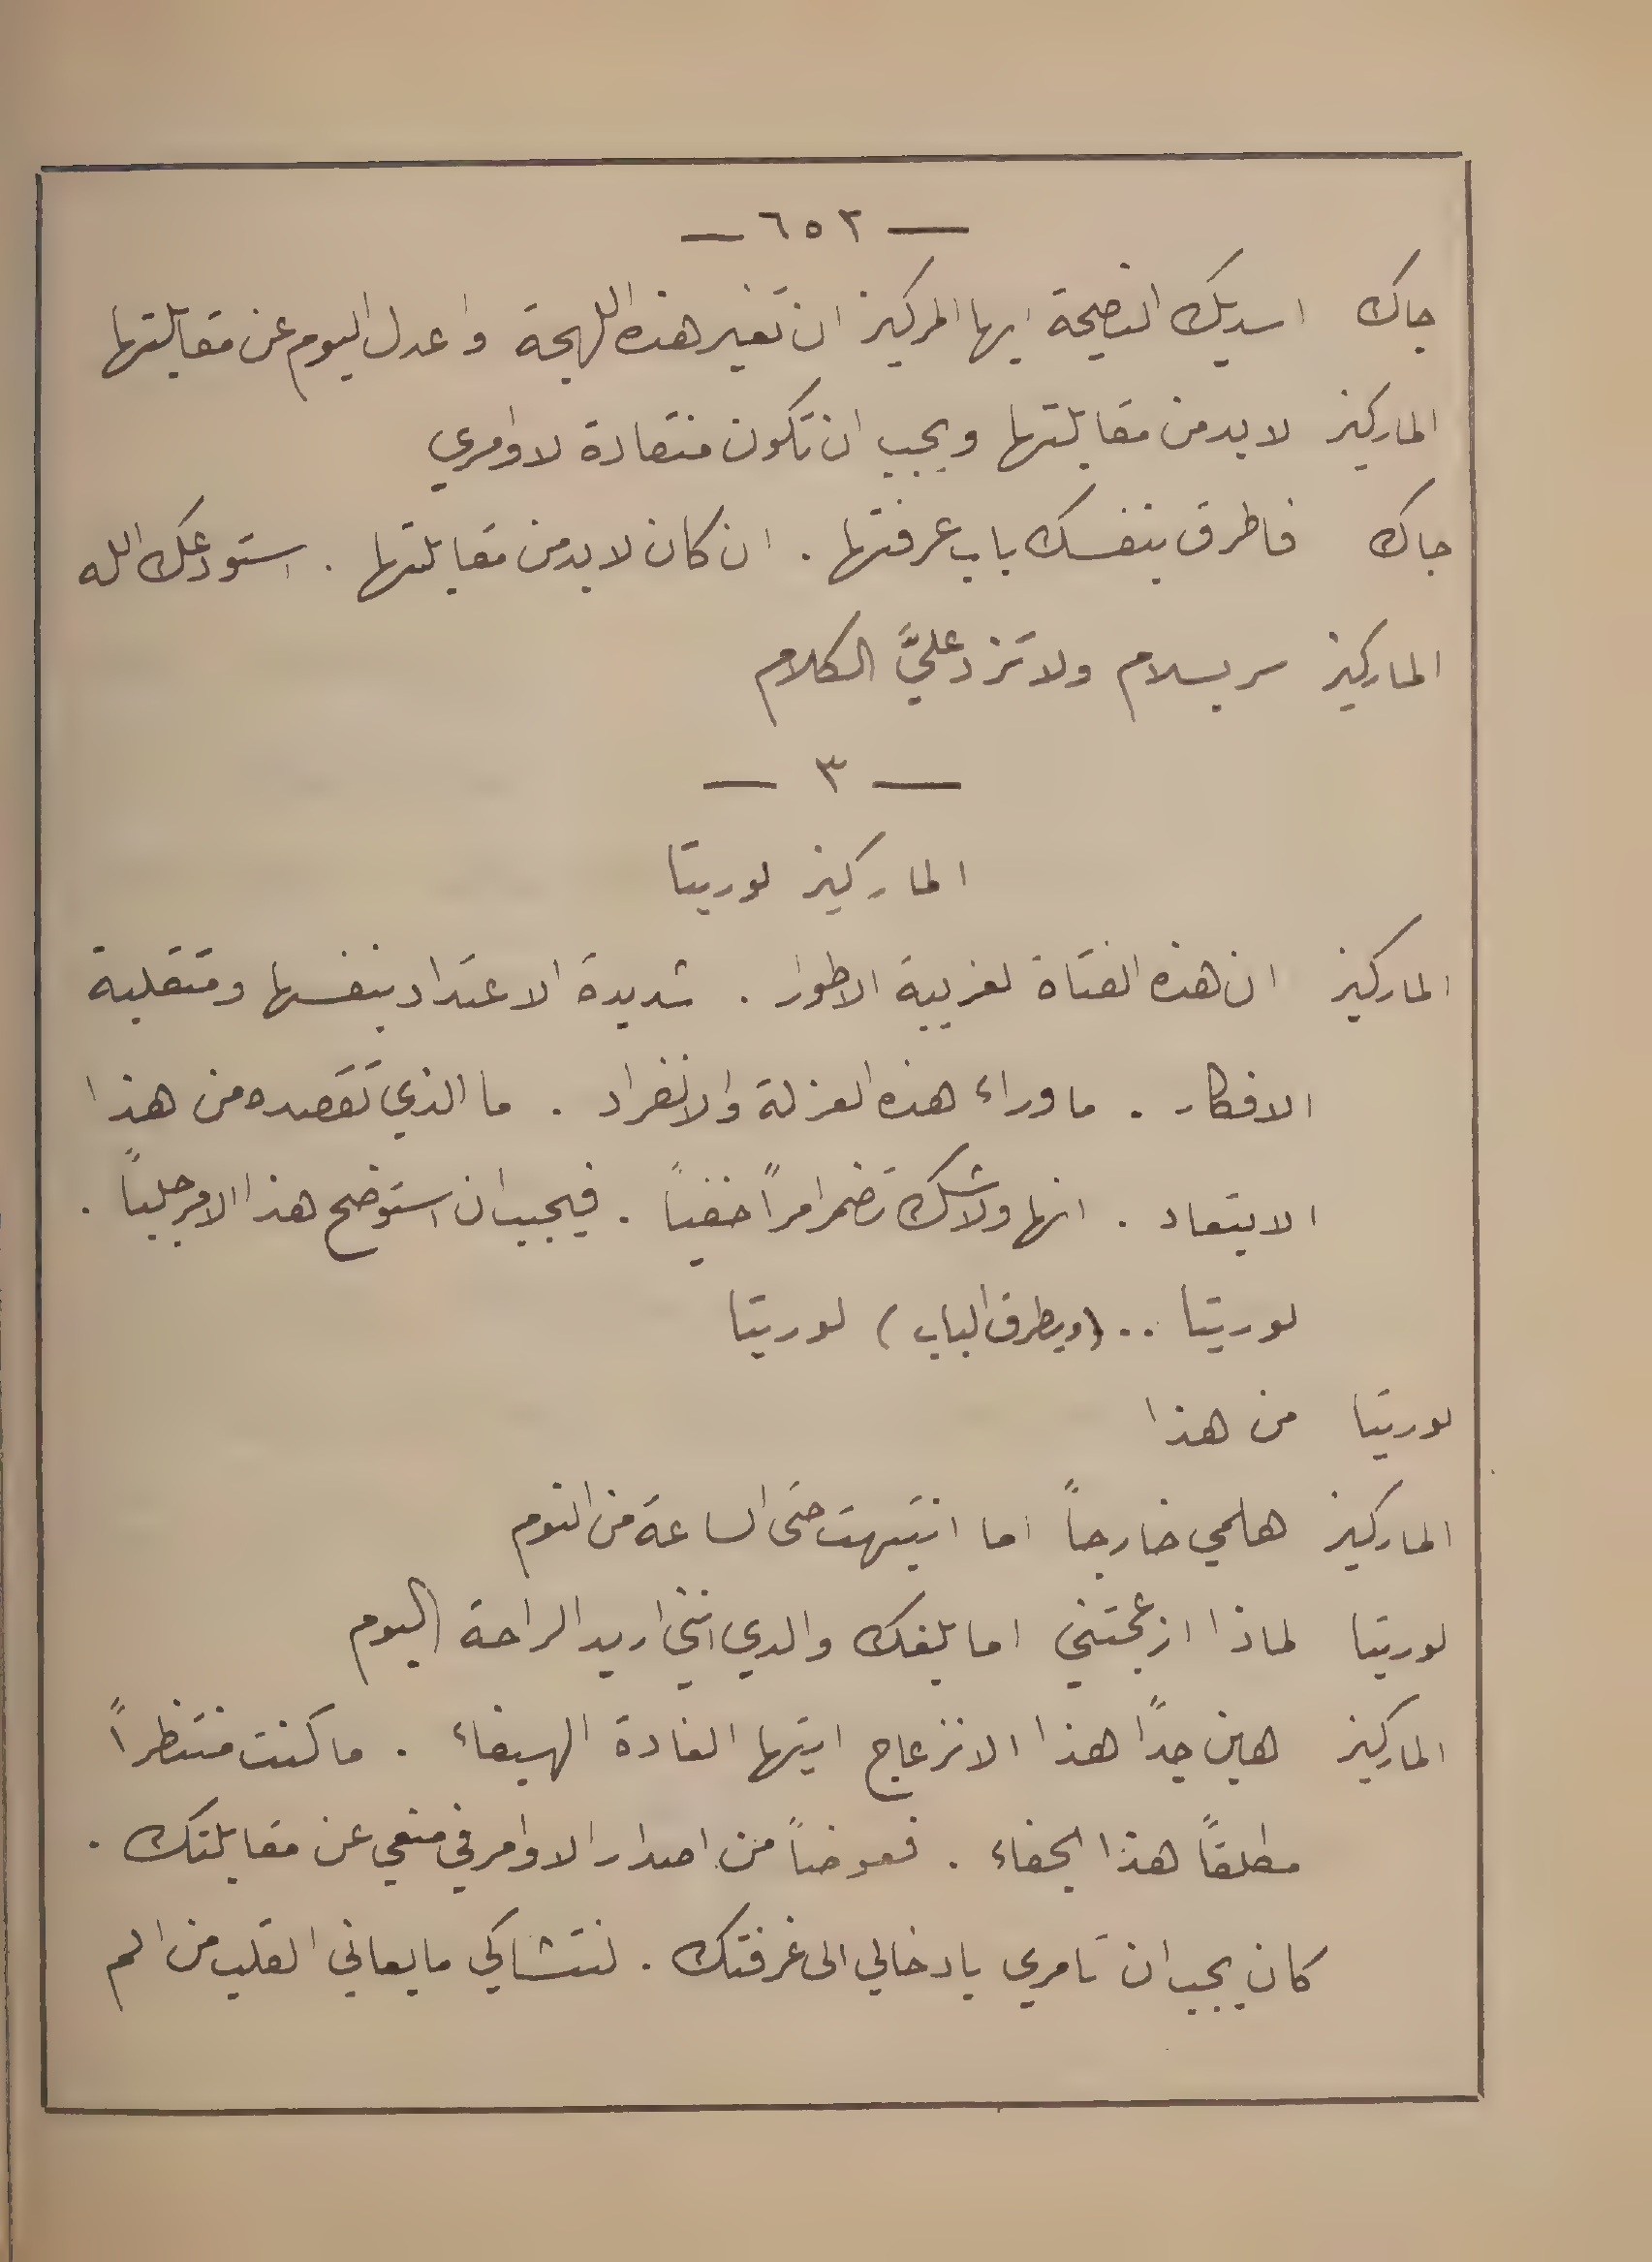 — ٦٥٢ —
جاك اسديك النصيحة ايها المركيز ان تغير هذه اللهجة واعدل اليوم عن مقابلتها
الماركيز لا بد من مقابلتها ويجب ان تكون منقادة لاوامري
جاك فاطرق بنفسك باب غرفتها . ان كان لا بد من مقابلتها . استودعك الله
الماركيز سر بسلام ولا تزد عليَّ الكلام
— ٣ —
الماركيز لوريتا
الماركيز ان هذه الفتاة لغريبة الاطوار . شديدة الاعتداد بنفسها ومتقلبة
الافكار . ما وراء هذه العزلة والانفراد . ما الذي تقصده من هذا
الابتعاد . انها ولا شك تضمر امراً خفياً . فيجب ان استوضح هذا الامر جلياً .
لوريتا .. (ويطرق الباب) لوريتا
لوريتا من هذا
الماركيز هلمي خارجاً اما انتبهت حتى الساعة من النوم
لوريتا لماذا ازعجتني اما بلغك والدي انني اريد الراحة اليوم
الماركيز هين جدًا هذا الانزعاج ايتها الغادة الهيفاء . ما كنت منتظراً
مطلقاً هذا الجفاء . فعوضاً من اصدار الاوامر في منعي عن مقابلتك .
كان يجب ان تامري بادخالي الى غرفتك . لنتشاكي ما يعاني القلب من الم